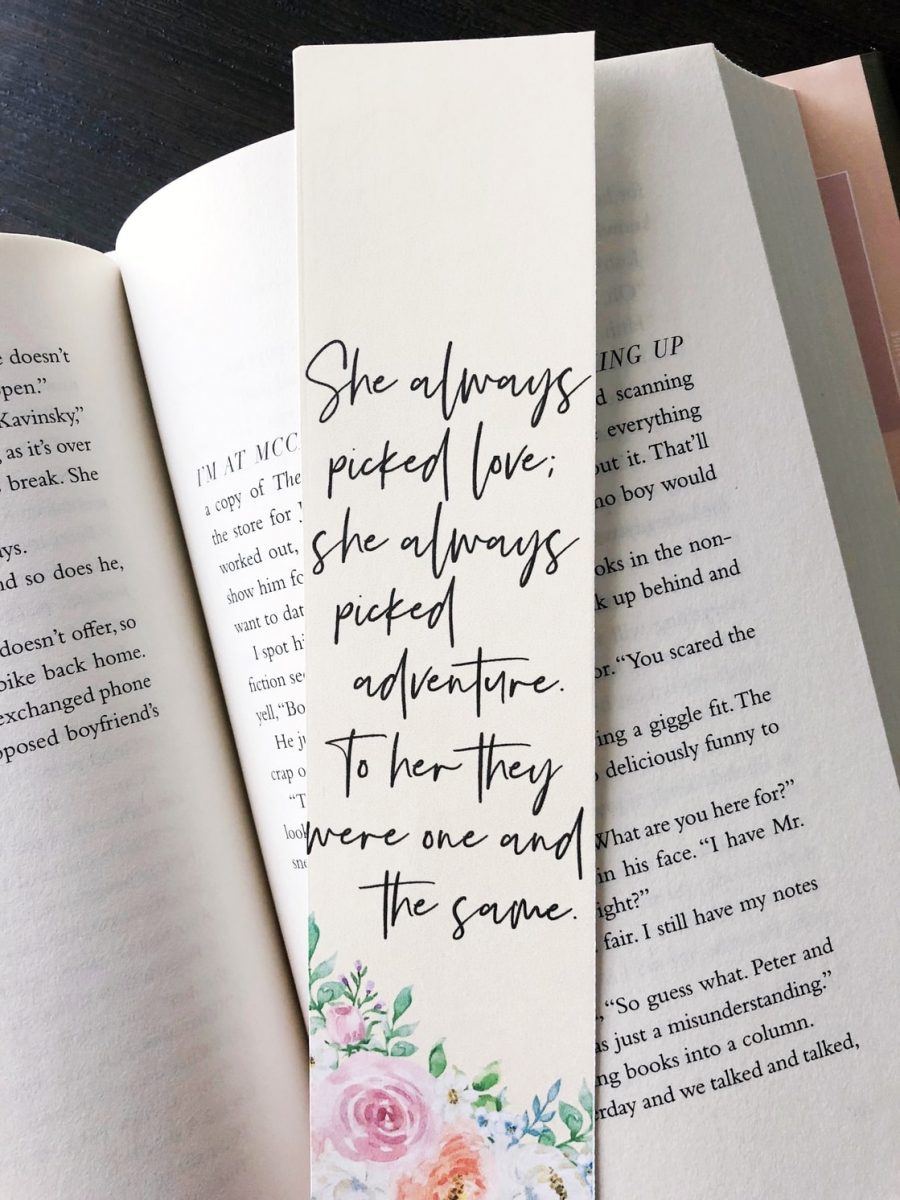 She always
picked love;
she always
picked
adventure.
To her they
were one and
the same.
doesn't
open."
Kavinsky,"
, as it's over
break. She
nd so does he,
doesn't offer, so
bike back home.
exchanged phone
pposed boyfriend's
I'M AT MCC
a copy of The
the store for
worked out,
show him fo
want to dat
I spot hi
fiction se
yell, "Bo
He ju
crap o
"T
look
sne
ING UP
d scanning
everything
out it. That'll
no boy would
oks in the non-
k up behind and
or. "You scared the
ing a giggle fit. The
deliciously funny to
What are you here for?"
in his face. "I have Mr.
ight?"
fair. I still have my notes
, "So guess what. Peter and
as just a misunderstanding."
ng books into a column.
erday and we talked and talked,